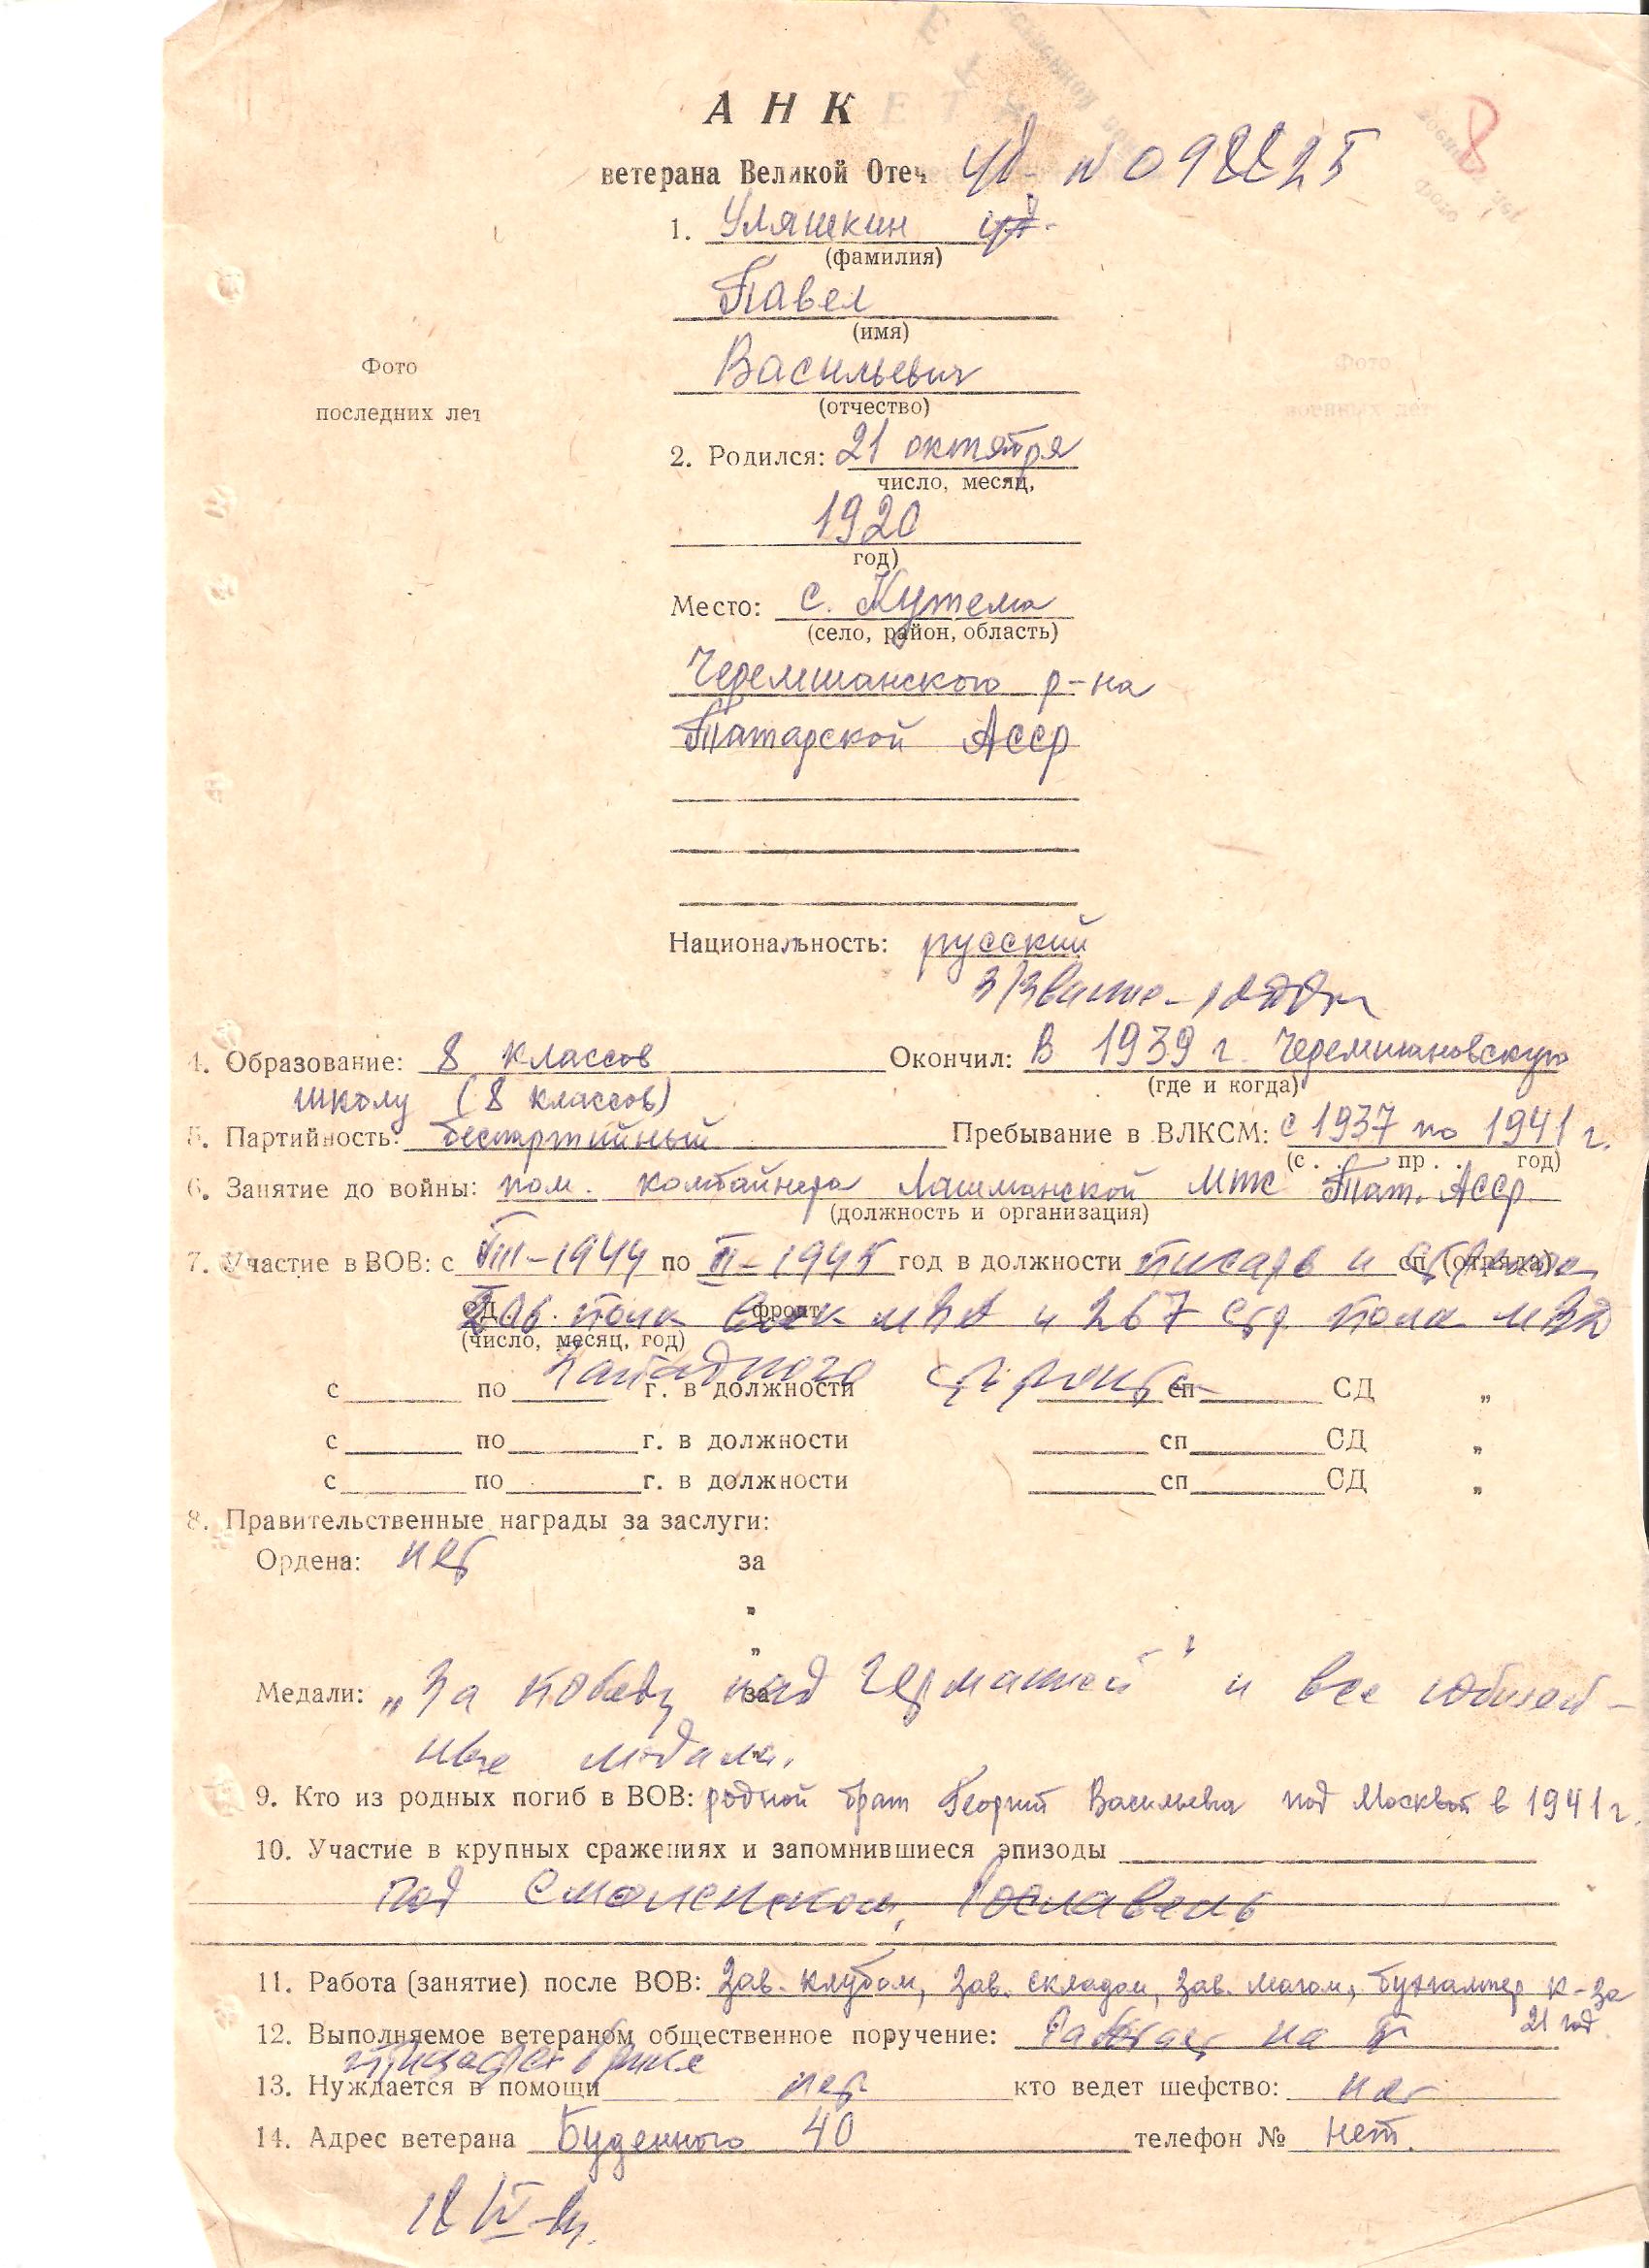 АНК
ветерана Великой Отеч уд. № 098825
8
1. Уляшкин
(фамилия)
Павел
(имя)
Фото
последних лет
Васильевич
(отчество)
2. Родился: 21 октября
число, месяц,
1920
год)
Место: с. Кутема
(село, район, область)
Черемшанского р-на
Татарской АССР
Национальность: русский
3/Звание - рядов
4. Образование: 8 классов Окончил: В 1939 г. Черемшановскую
(где и когда)
школу (8 классов)
5. Партийность: беспартийный Пребывание в ВЛКСМ: с 1937 по 1941 г.
(с . . пр . . год)
6. Занятие до войны: пом. комбайнера Лашманской МТС Тат. АССР
(должность и организация)
7. Участие в ВОВ: с VIII-1944 по год в должности писарь и сп (отряда)
СД . . фронт
полк войск МВД и 267 стр. полка МВД
(число, месяц, год)
Западного фронта
с по г. в должности сп СД „
с по г. в должности сп СД „
с по г. в должности сп СД „
8. Правительственные награды за заслуги:
Ордена: нет за
„
„
Медали: „За победу над Германией" и все юбилей-
за
ные медали.
9. Кто из родных погиб в ВОВ: родной брат Георгий Васильевич под Москвой в 1941 г.
10. Участие в крупных сражениях и запомнившиеся эпизоды
под Смоленском, Рославель
11. Работа (занятие) после ВОВ: Зав. клубом, зав. складом, зав. магом, бухгалтер к-за
21 год
12. Выполняемое ветераном общественное поручение: Работает на
13. Нуждается в помощи нет кто ведет шефство: нет
14. Адрес ветерана Буденного 40 телефон № нет.
18 IV